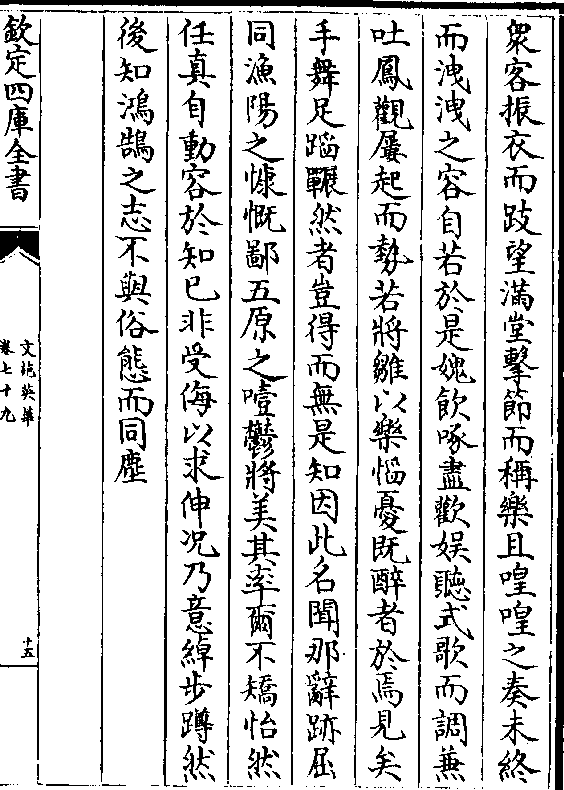 衆客振衣而跂望滿堂擊節而稱樂且喤喤之奏未終
而洩洩之容自若於是媿飲啄盡歡娱聽式歌而調兼
吐鳳觀屢起而勢若將雛以樂惱憂既醉者於焉見矣
手舞足蹈囅然者豈得而無是知因此名聞那辭跡屈
同漁陽之慷慨鄙五原之噎鬱將美其率爾不矯怡然
任真自動容於知已非受侮以求伸况乃意綽步蹲然
後知鴻鵠之志不與俗態而同塵
欽定四庫全書
文苑英華
卷七十九
十五